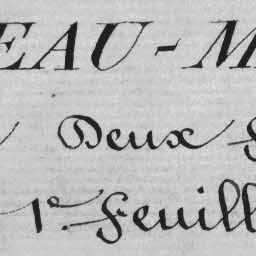 EAU-M
Deux
1e. Feuill